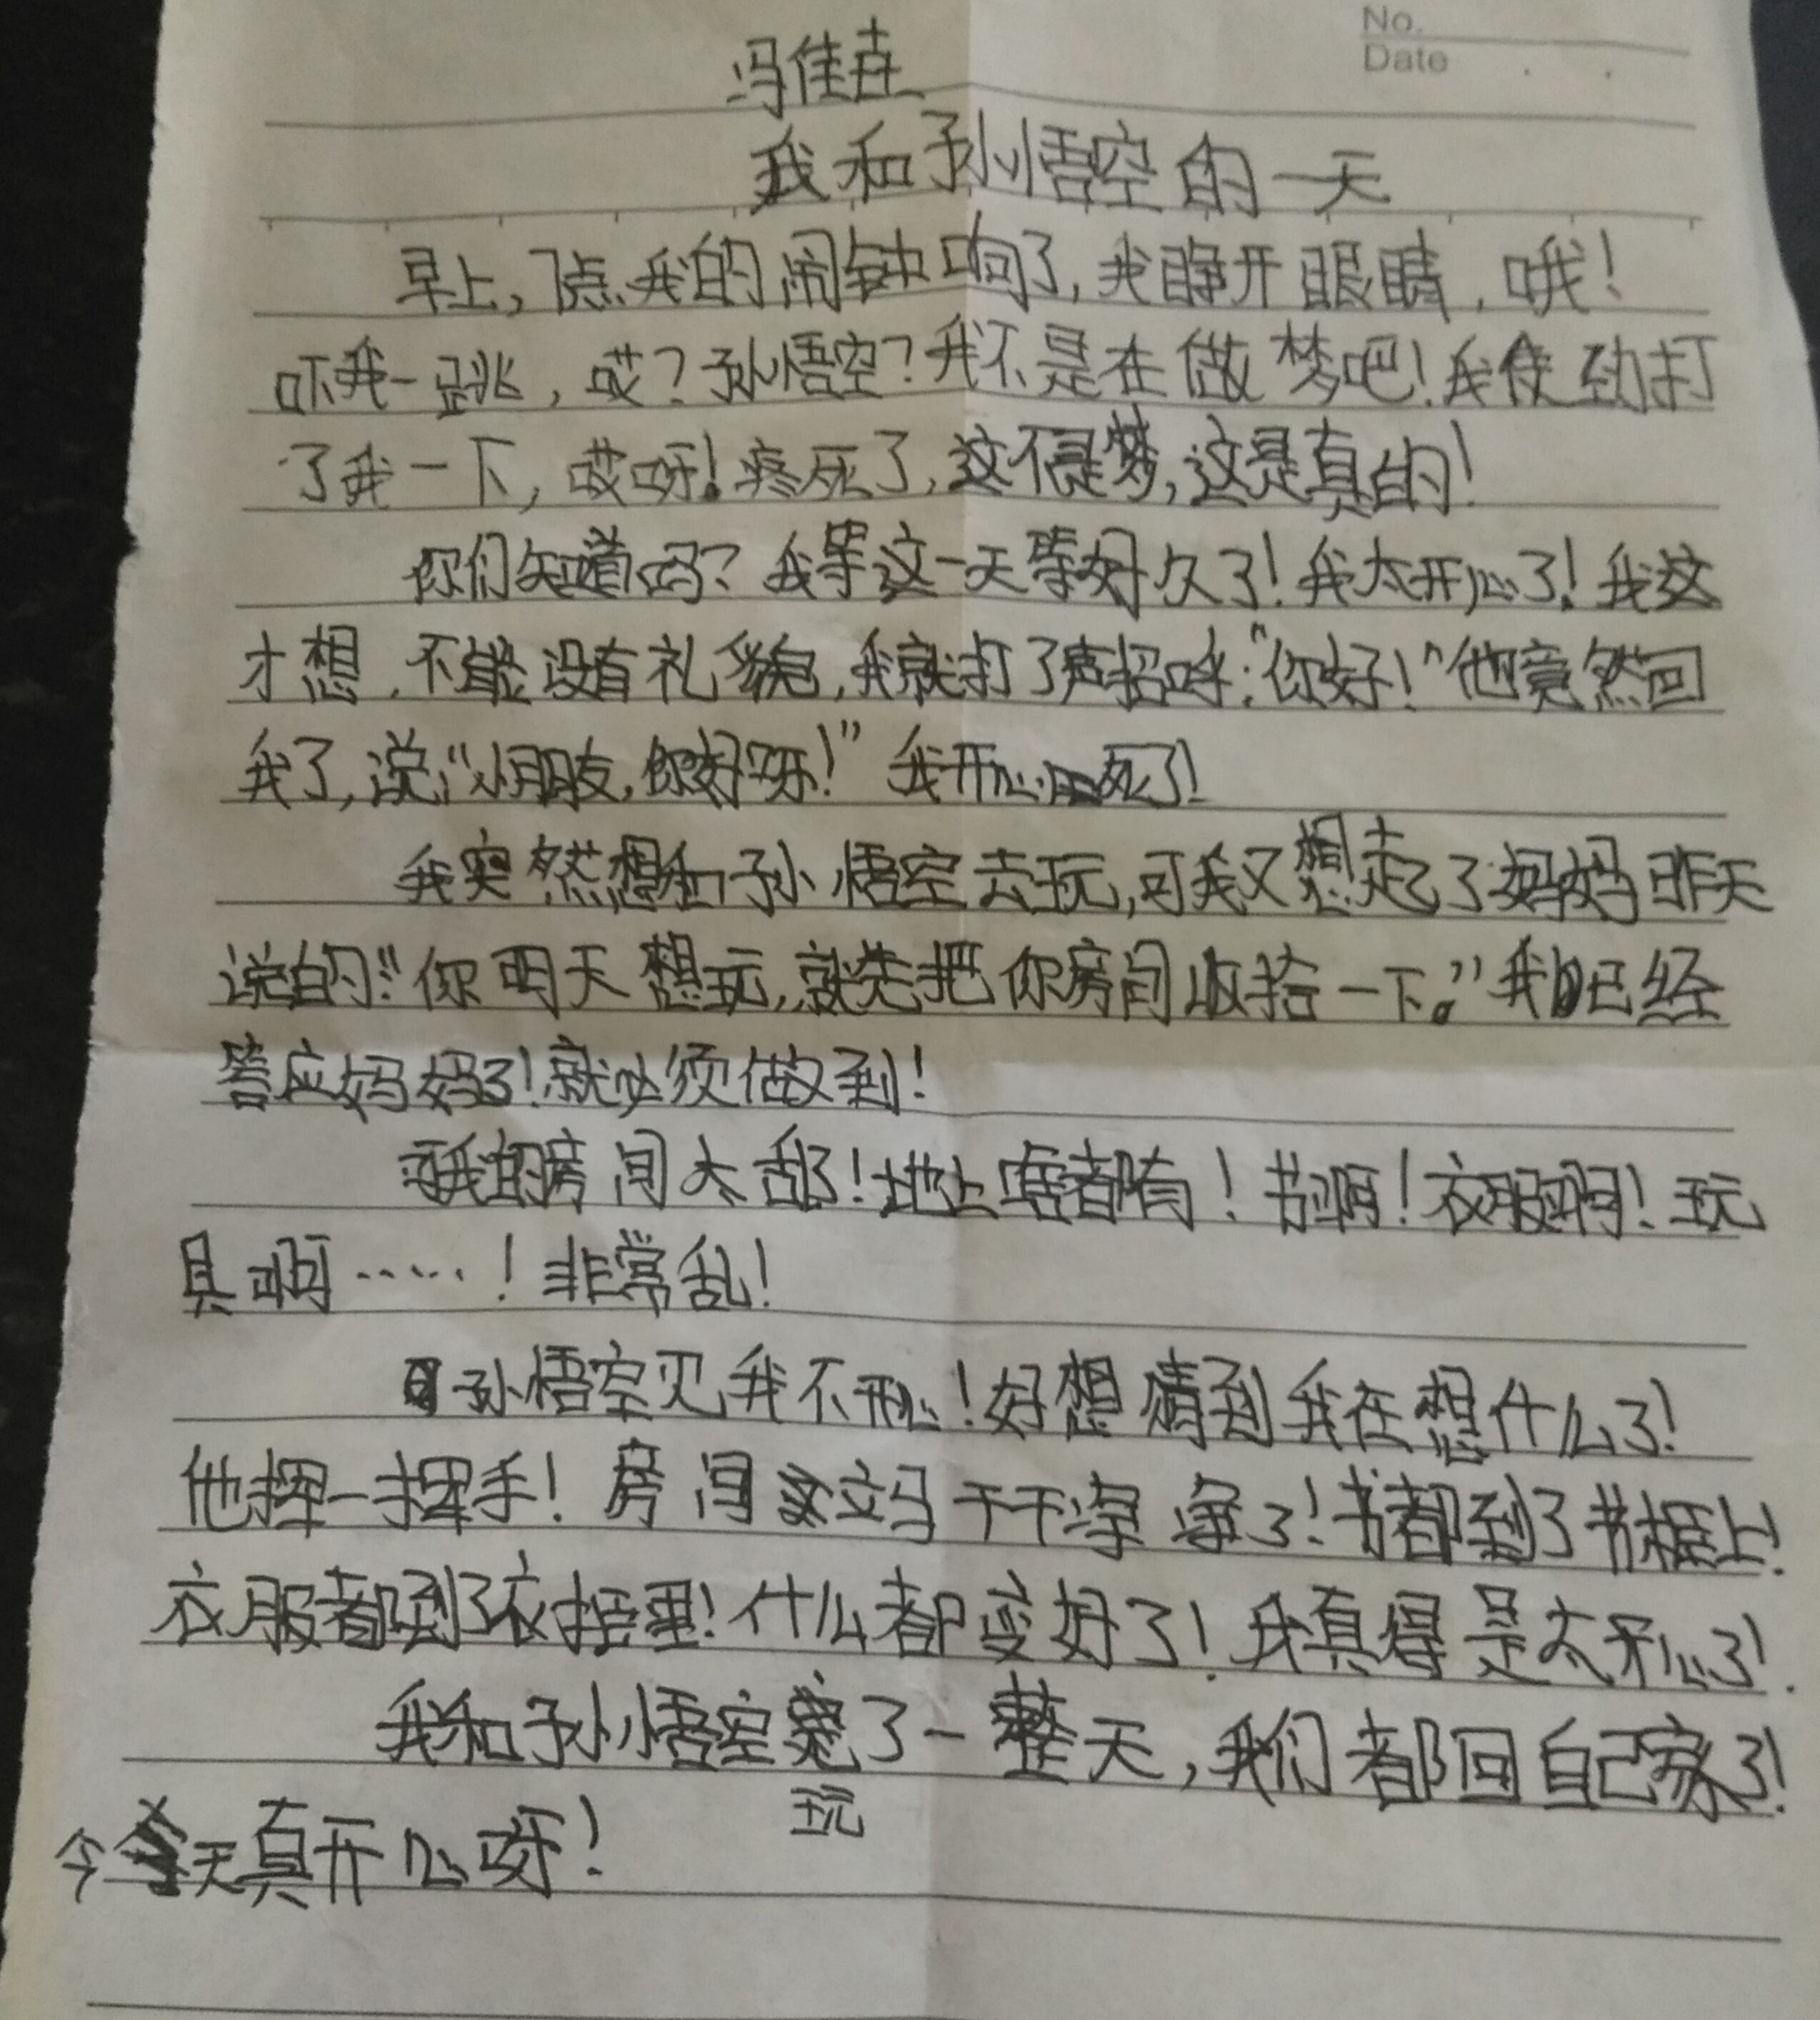 No.
Date
冯佳卉
我和孙悟空的一天
早上,7点,我的闹钟响了,我睁开眼睛,哦!
吓我一跳,哎?孙悟空?我不是在做梦吧!我使劲打
了我一下,哎呀!疼死了,这不是梦,这是真的!
你们知道吗?我等这一天等好久了!我太开心了!我这
才想,不能没有礼貌,我就打了声招呼:“你好!”他竟然回
我了,说:“小朋友,你好呀!”我开心死了!
我突然想和孙悟空去玩,可我又想起了妈妈昨天
说的:“你明天想玩,就先把你房间收拾一下。”我已经
答应妈妈了!就必须做到!
可我的房间太乱了!地上啥都有!书啊!衣服啊!玩
具啊……!非常乱!
孙悟空见我不开心!好想猜到我在想什么了!
他挥一挥手!房间立马干干净净了!书都到了书柜上!
衣服都到了衣柜里!什么都变好了!我真得是太开心了!
我和孙悟空玩了一整天,我们都回自己家了!
今天真开心呀!